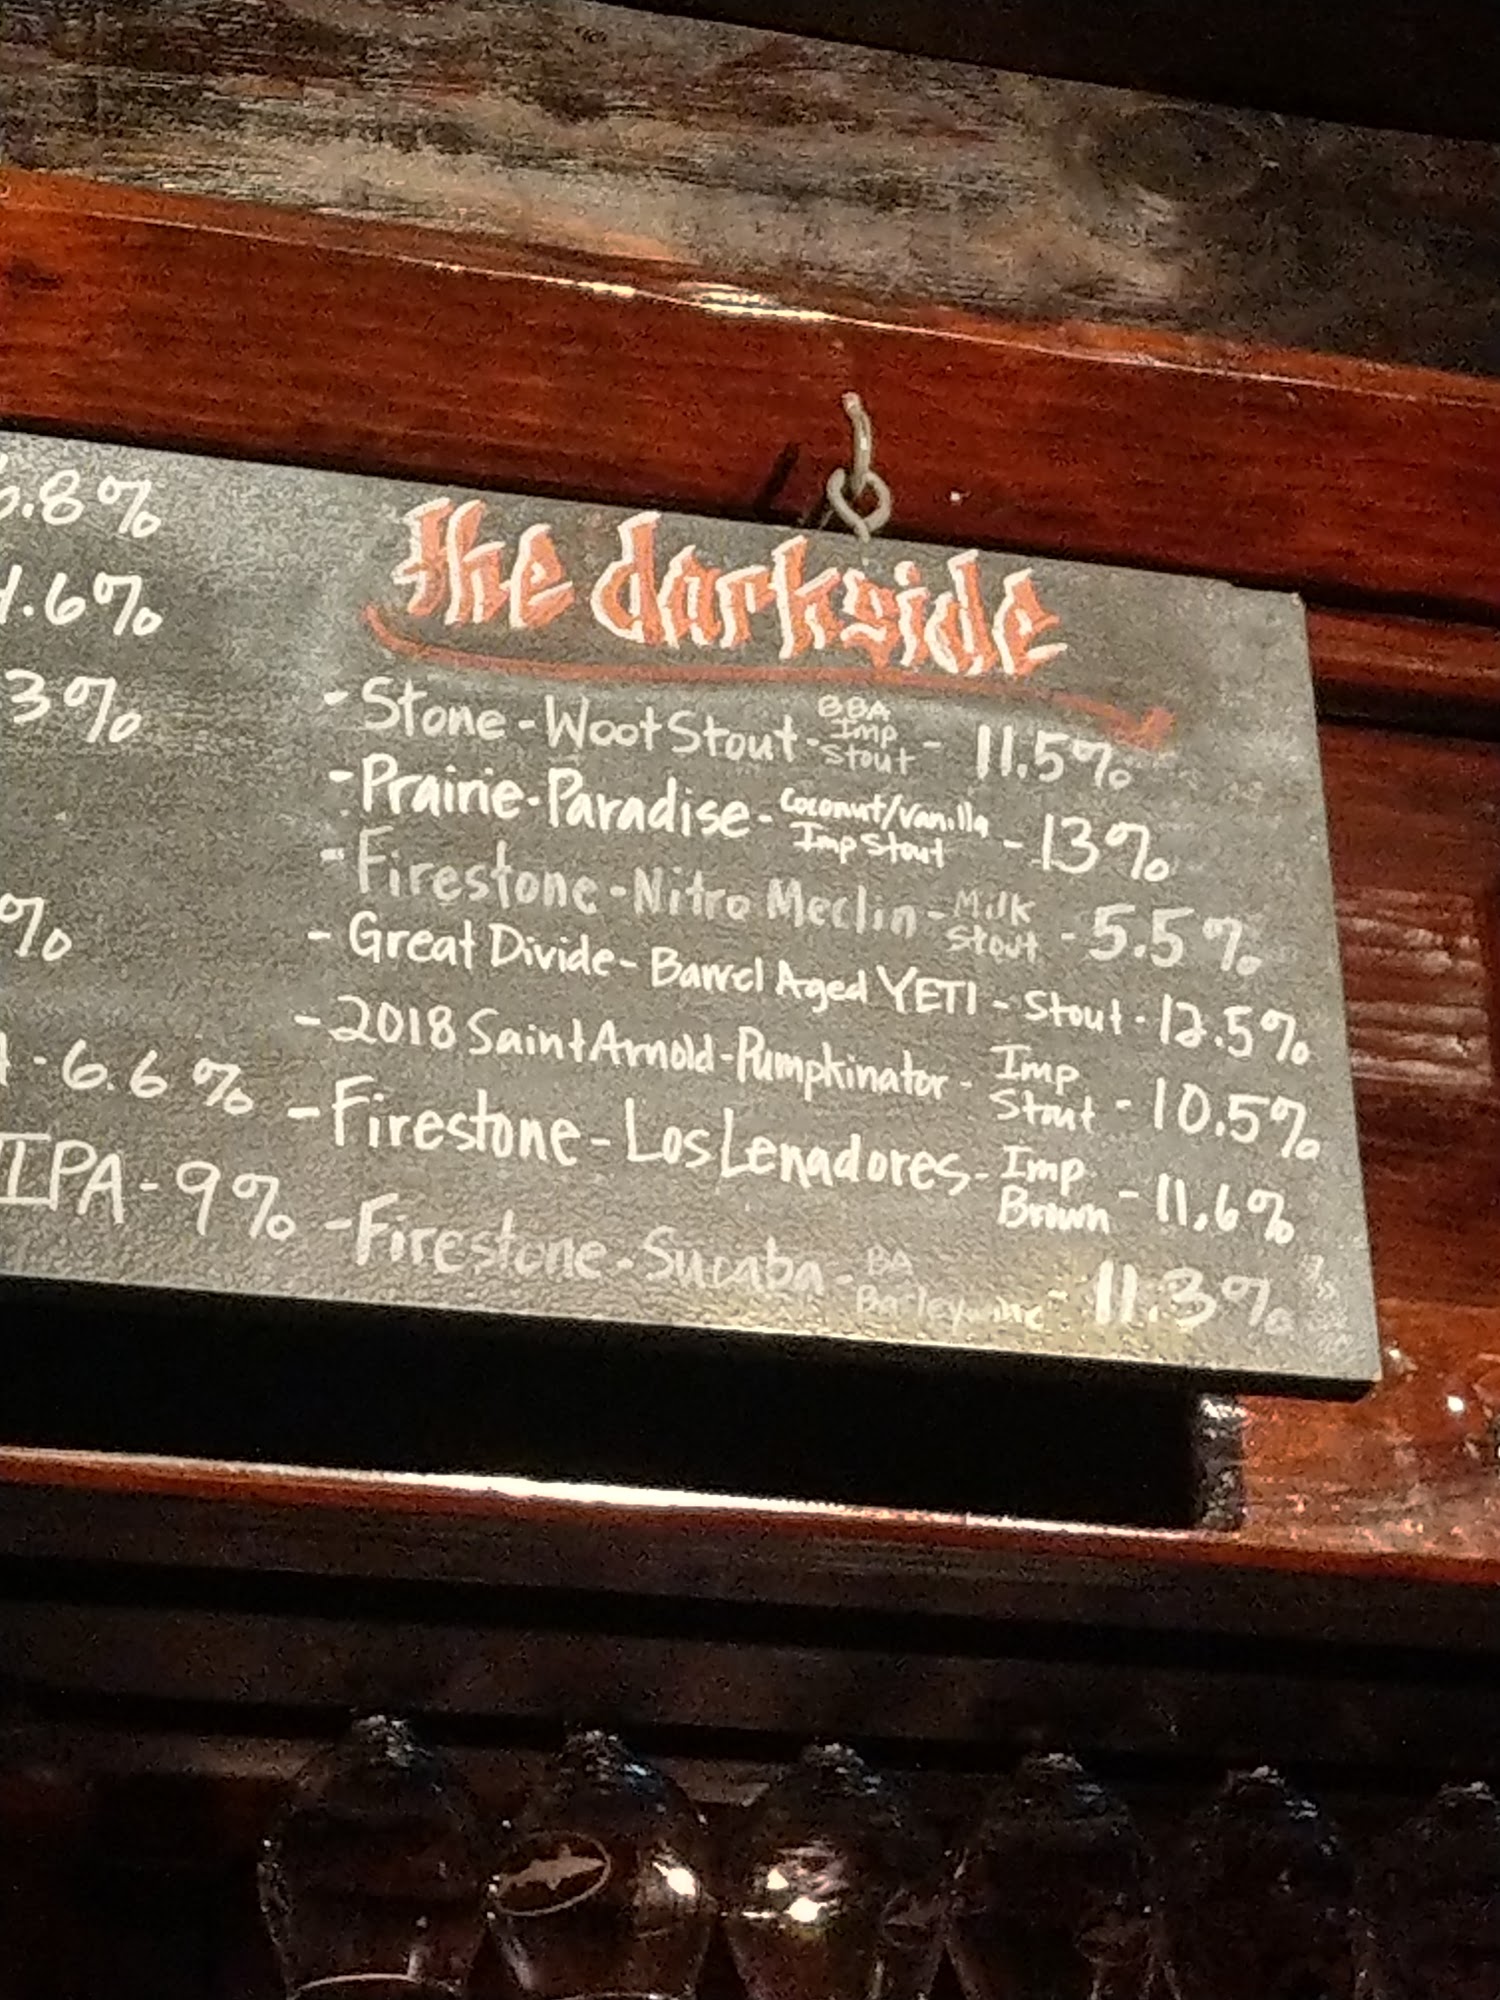 .8%
.6%
3%
%
- 6.6%
IPA - 9%
the darkside
- Stone - Woot Stout - BBA Imp Stout - 11.5%
- Prairie - Paradise - Coconut/Vanilla Imp Stout - 13%
- Firestone - Nitro Merlin - Milk Stout - 5.5%
- Great Divide - Barrel Aged YETI - Stout - 12.5%
- 2018 Saint Arnold - Pumpkinator - Imp Stout - 10.5%
- Firestone - Los Lenadores - Imp Brown - 11.6%
- Firestone - Sucaba - BA Barleywine - 11.3%